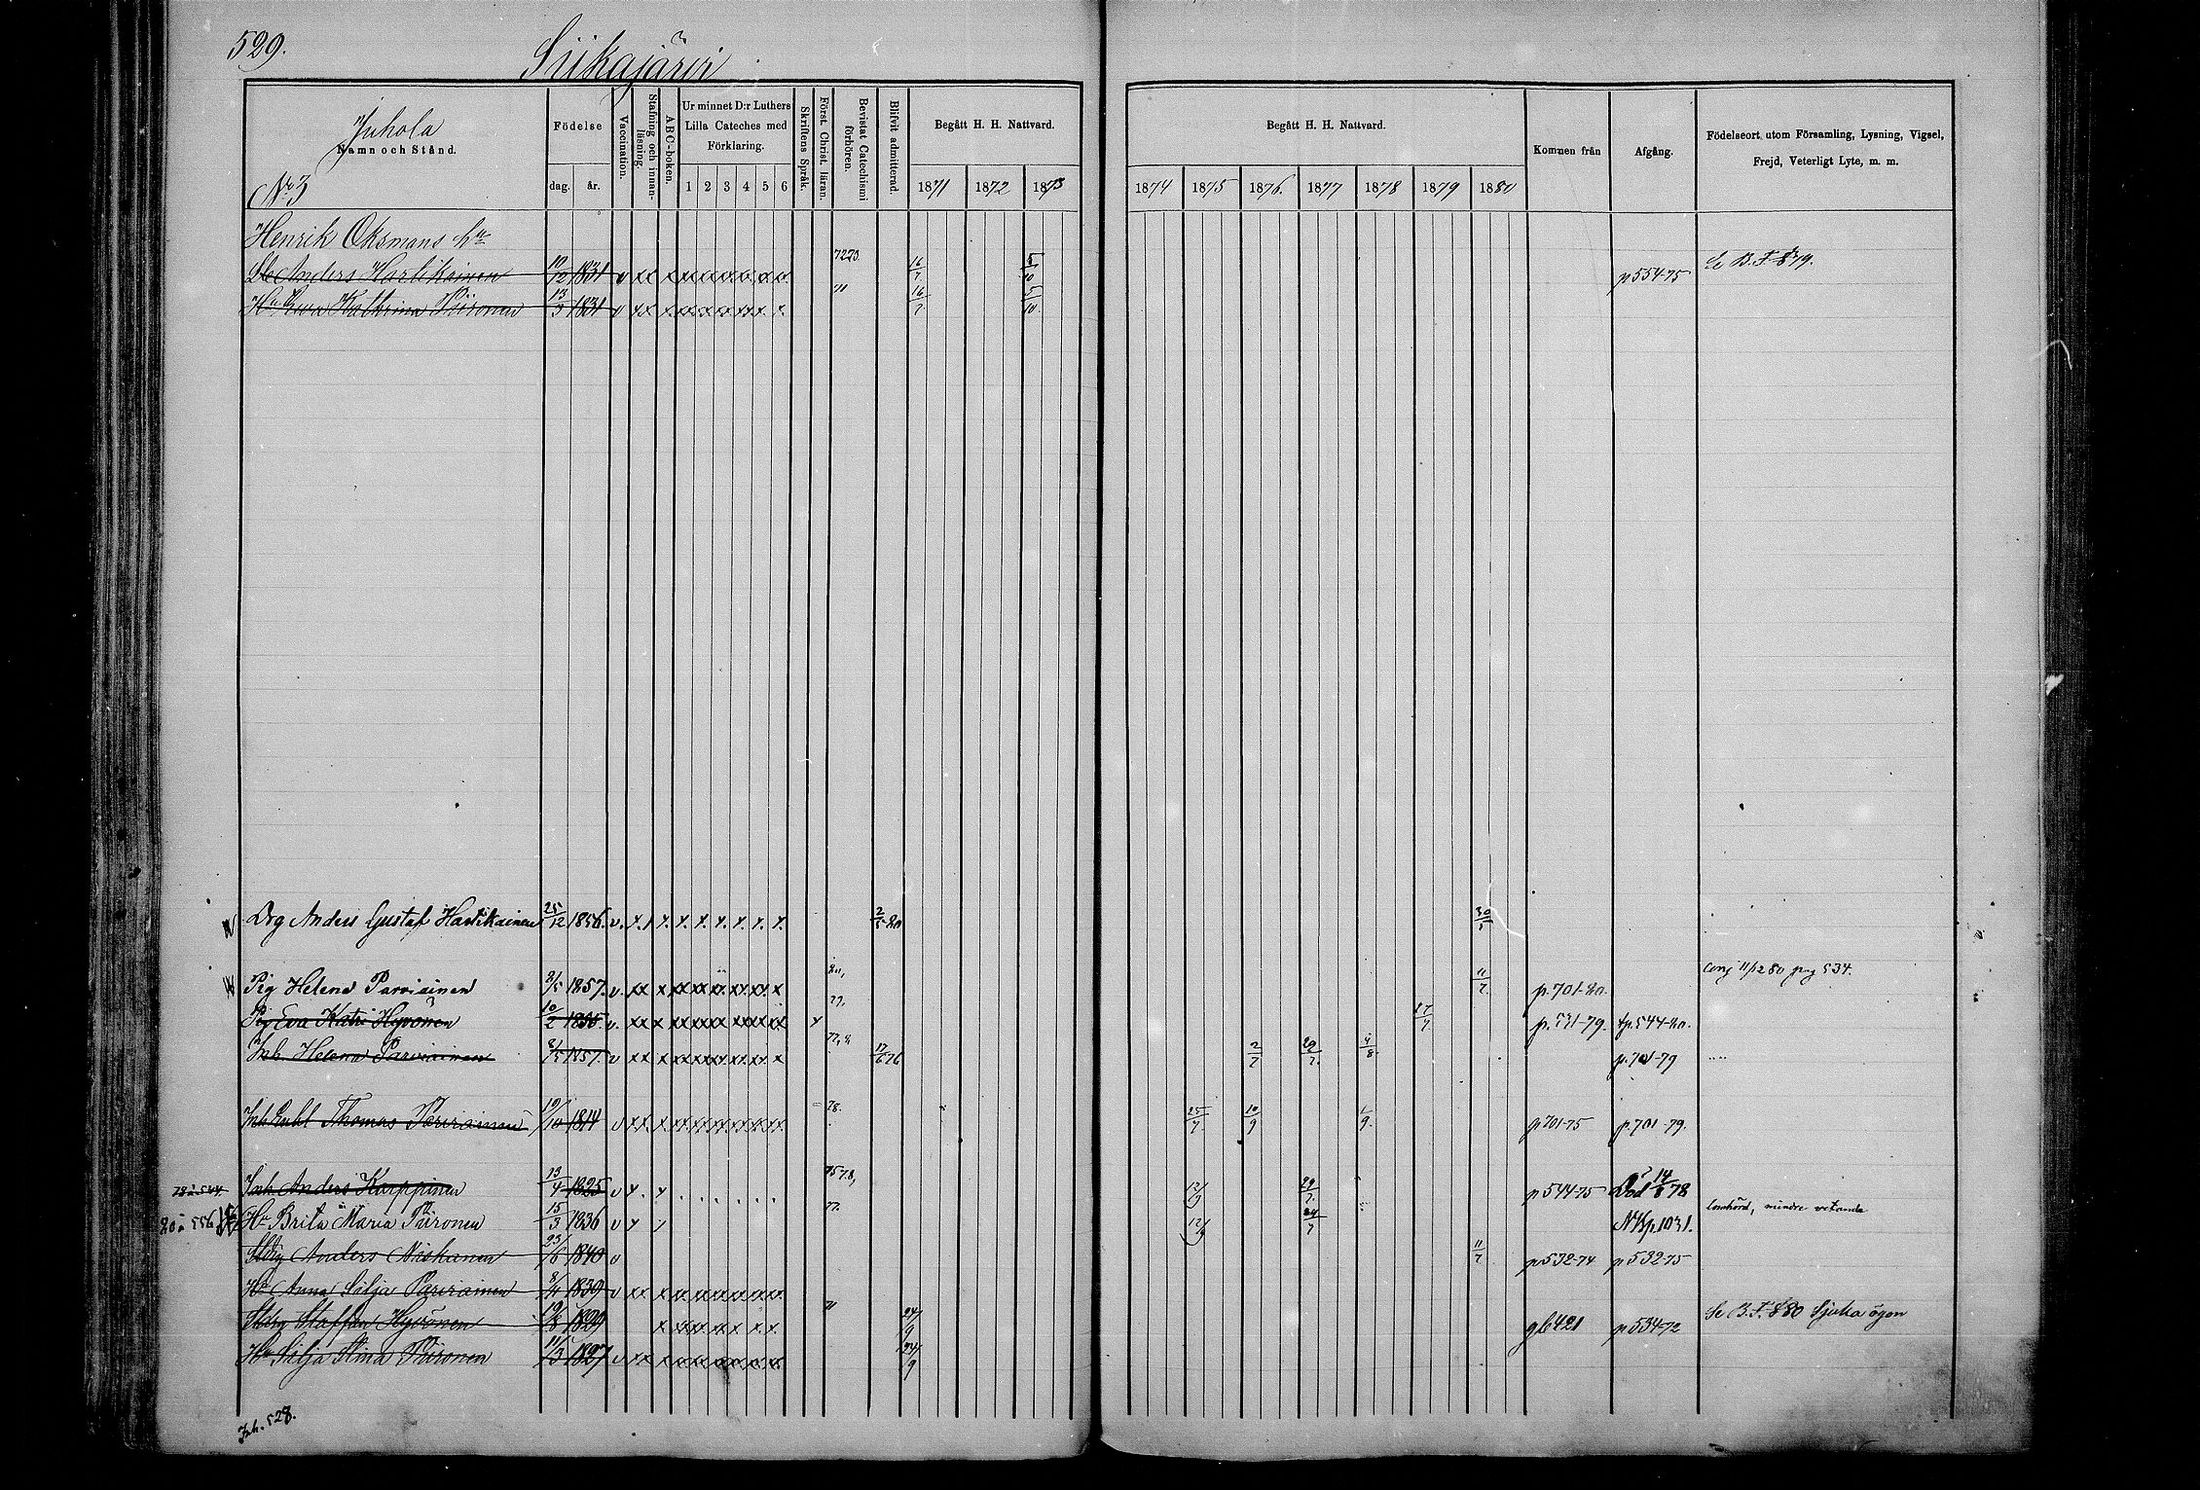 529.
Siikajärvi
Juhola
Namn och Stånd.
No 3
Födelse
dag. år.
Vaccination.
Stafning och innan-läsning.
ABC-boken.
Ur minnet D:r Luthers Lilla Cateches med Förklaring.
1 2 3 4 5 6
Skriftens Språk.
Först. Christ. läran.
Bevistat Catechismi förhören.
Blifvit admitterad.
Begått H. H. Nattvard.
1871 1872 1873
Begått H. H. Nattvard.
1874 1875 1876 1877 1878 1879 1880
Kommen från
Afgång.
Födelseort, utom Församling, Lysning, Vigsel, Frejd, Veterligt Lyte, m. m.
Henrik Oksmans
Anders Hartikainen 10/12 1831 v 7273 16/7 5/10 p 554-75 Se B.F. 879.
Hu Ewa Kathrina Piironen 13/3 1831 v 16/7 5/10
Drg Anders Gustaf Hartikainen 25/12 1856. v. 30/5
Pig Helena Parviainen 8/5 1857. v. 80, 11/7 p. 701-80. conj 11/12 80 pag 534.
Pig Eva Katri Hyvönen 10/2 1856 v. 17/7 p. 531-79. p 544-80.
Inh. Helena Parviainen 8/5 1857. v 17/6 76 2/7 29/7 4/8 p. 701-79
Inh Enkl Thomas Parviainen 19/10 1814 v 78. 25/7 10/9 1/9 p 701-75 p. 701-79.
78 à 544. Inh Anders Karppinen 13/4 1825 v 7578, 12/9 29/7 p 544-75 Död 14/8 78
80 à 556 Hu Brita Maria Piironen 15/3 1836 v 77. 12/9 24/7 NB p. 1031. lomhörd, mindre vetande
Anders Niskanen 23/6 1840 v 11/7 p 532-74 p 532-75
Hu Anna Silja Parviainen 8/4 1839 v
Staffan Hyvönen 19/8 1829 24/9 gb 421 p 534-72 Se B.F. 880 Sjuka ögon
Hu Silja Stina Piironen 11/3 1827 v 24/9
Inh. 528.